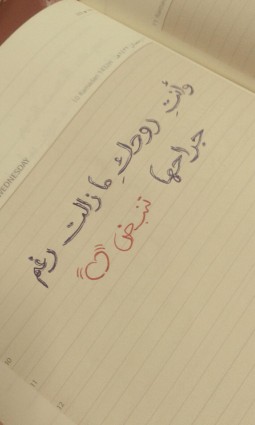 WEDNESDAY
وأنتِ روحكِ ما زالت رغم
جراحها تنبض
10
11
12